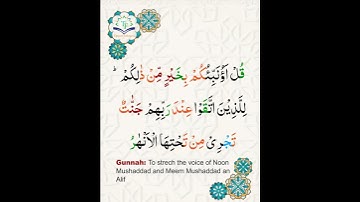 قُلْ اَؤُنَبِّئُكُمْ بِخَيْرٍ مِّنْ ذٰلِكُمْ ؕ
لِلَّذِيْنَ اتَّقَوْا عِنْدَ رَبِّهِمْ جَنّٰتٌ
تَجْرِيْ مِنْ تَحْتِهَا الْاَنْهٰرُ
Gunnah: To strech the voice of Noon
Mushaddad and Meem Mushaddad an
Alif